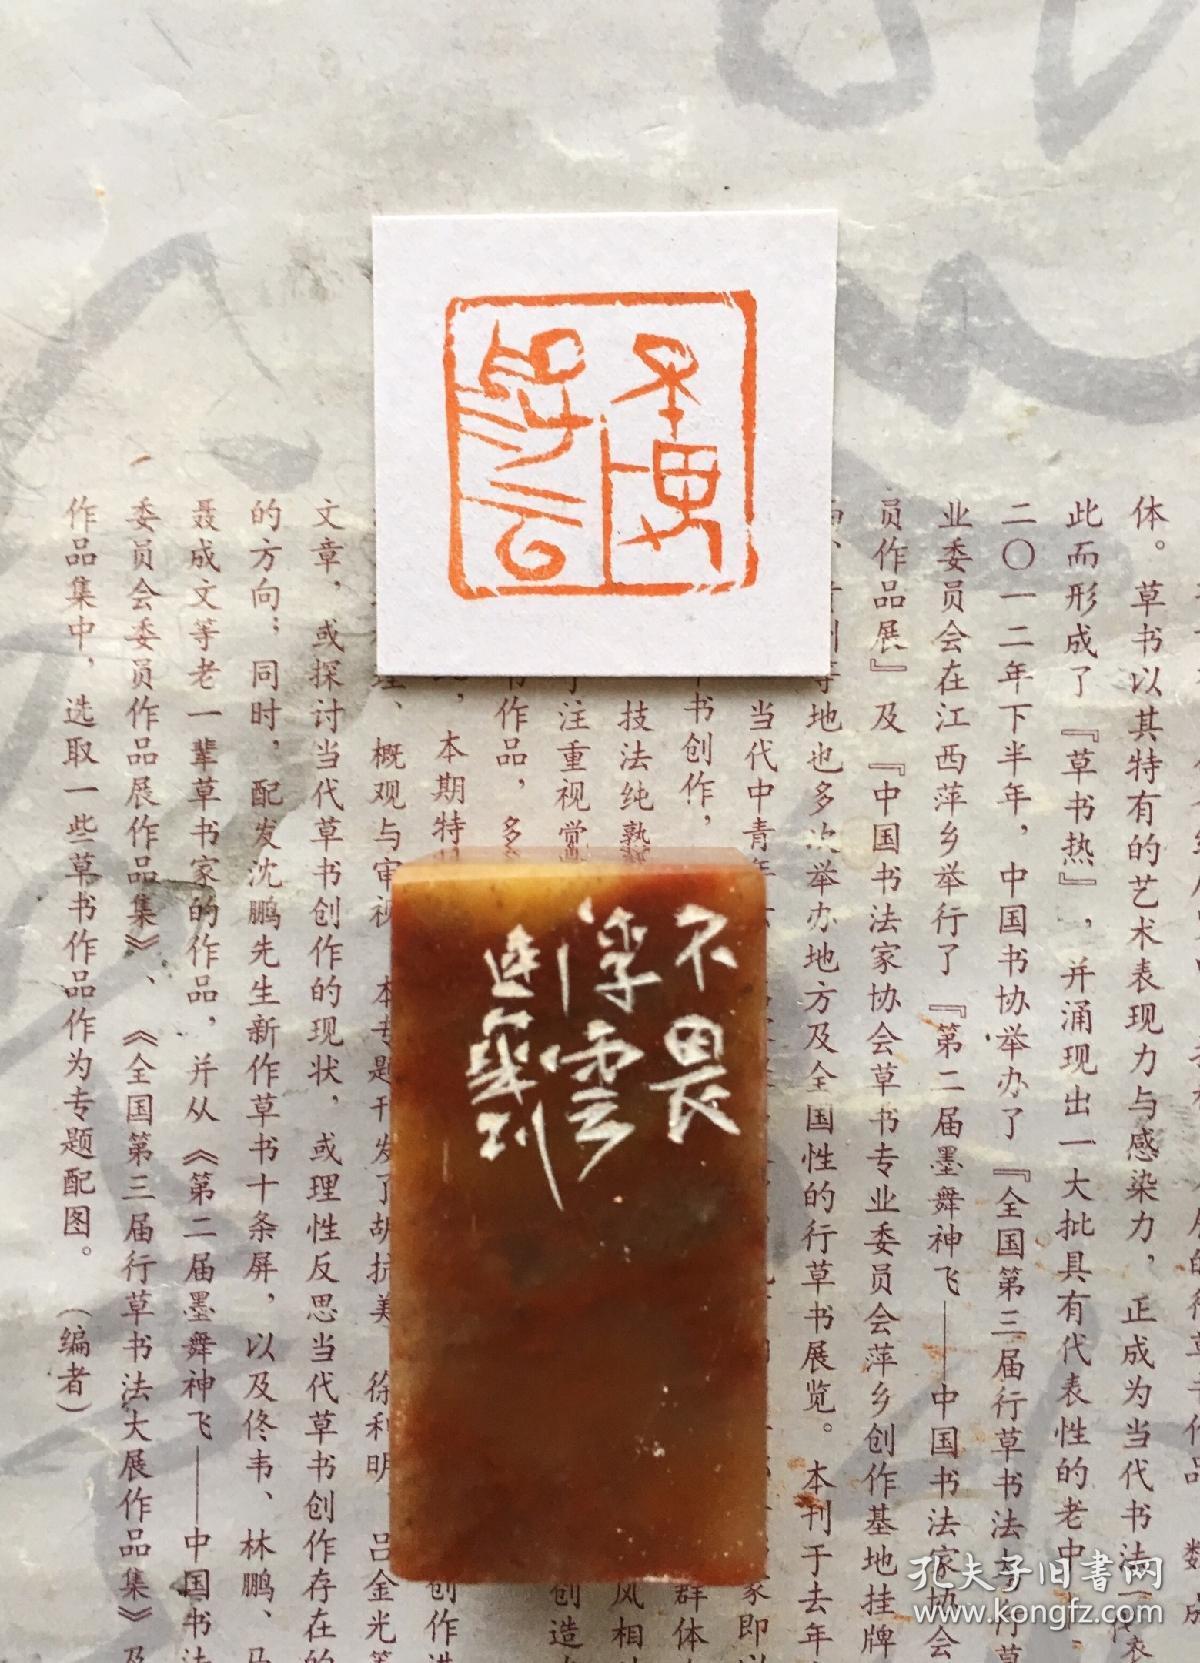 不畏
浮云
不畏
浮雲
体。草书以其特有的艺术表现力与感染力，正成为当代书法
此而形成了『草书热』，并涌现出一大批具有代表性的老中
二〇一二年下半年，中国书协举办了『全国第三届行草书法
业委员会在江西萍乡举行了『第二届墨舞神飞——中国书法家协会
员作品展』及『中国书法家协会草书专业委员会萍乡创作基地挂牌
等地也多次举办地方及全国性的行草书展览。本刊于去年
当代中青年 家即以
书创作， 群体
技法纯熟 风相
注重视觉 创造
书作品，多
本期特 创作
概观与审视 本专题刊发了胡抗美 徐利明 吕金光等
文章，或探讨当代草书创作的现状，或理性反思当代草书创作存在的
的方向；同时，配发沈鹏先生新作草书十条屏，以及佟韦、林鹏、马
聂成文等老一辈草书家的作品，并从《第二届墨舞神飞——中国书法
委员会委员作品展作品集》、《全国第三届行草书法大展作品集》及
作品集中，选取一些草书作品作为专题配图。（编者）
孔夫子旧书网
www.kongfz.com